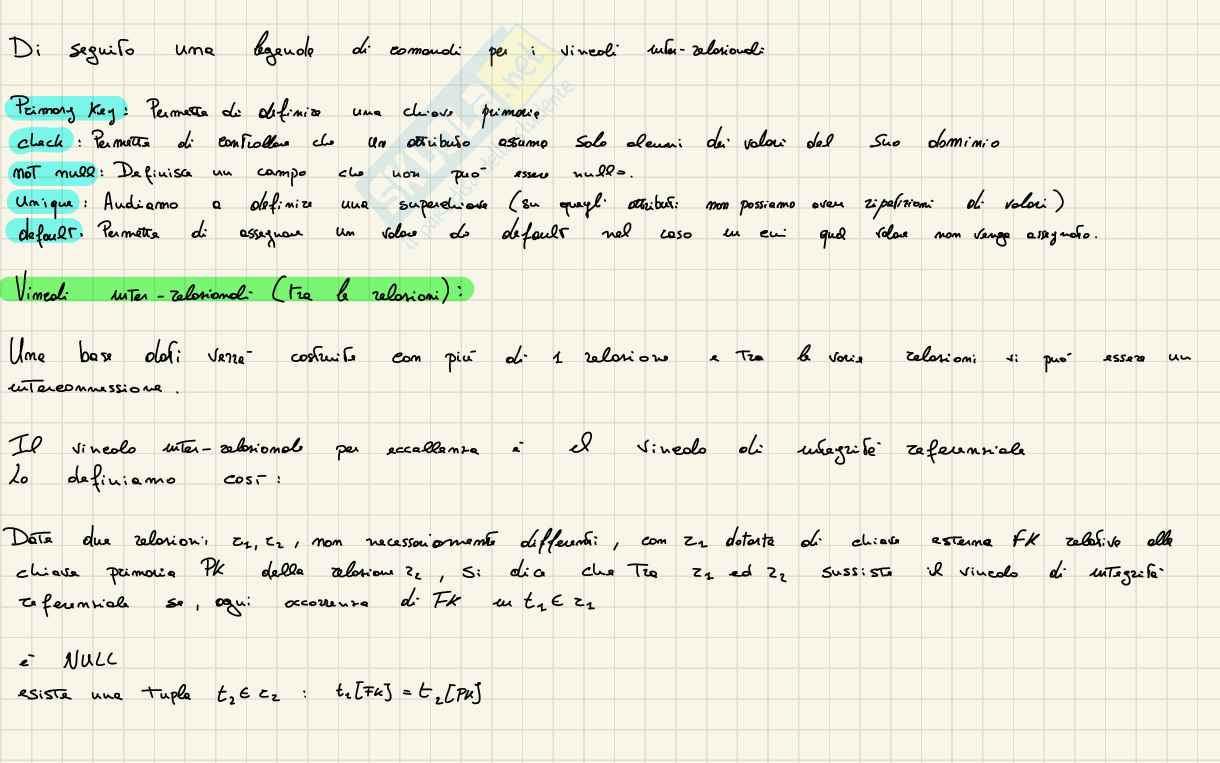 Di seguito una legenda di comandi per i vincoli inter-relazionali
Primary Key: Permette di definire una chiave primaria
check: Permette di controllare che un attributo assuma solo alcuni dei valori del suo dominio
not null: Definisce un campo che non può essere nullo.
Unique: Andiamo a definire una superchiave (su quegli attributi non possiamo avere ripetizioni di valori)
default: Permette di assegnare un valore di default nel caso in cui quel valore non venga assegnato.
Vincoli inter-relazionali (tra le relazioni):
Una base dati verrà costruita con più di 1 relazione e tra le varie relazioni vi può essere un
interconnessione.
Il vincolo inter-relazionale per eccellenza è il vincolo di integrità referenziale
Lo definiamo così:
Date due relazioni r₁, r₂, non necessariamente differenti, con r₁ dotata di chiave esterna FK relativa alla
chiave primaria PK della relazione r₂, si dice che tra r₁ ed r₂ sussiste il vincolo di integrità
referenziale se, ogni occorrenza di FK in t₁ ∈ r₁
è NULL
esiste una tupla t₂ ∈ r₂ : t₁[FK] = t₂[PK]
SKUOLA.net